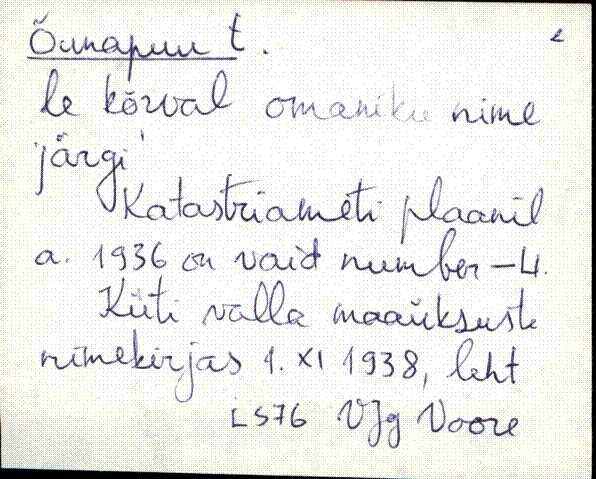 Õunapuu t. 2
le kõrval omaniku nime
järgi
Katastriameti plaanil
a. 1936 on vaid number – 4.
Küti valla maaüksuste
nimekirjas 1. XI 1938, leht
VJg Voore